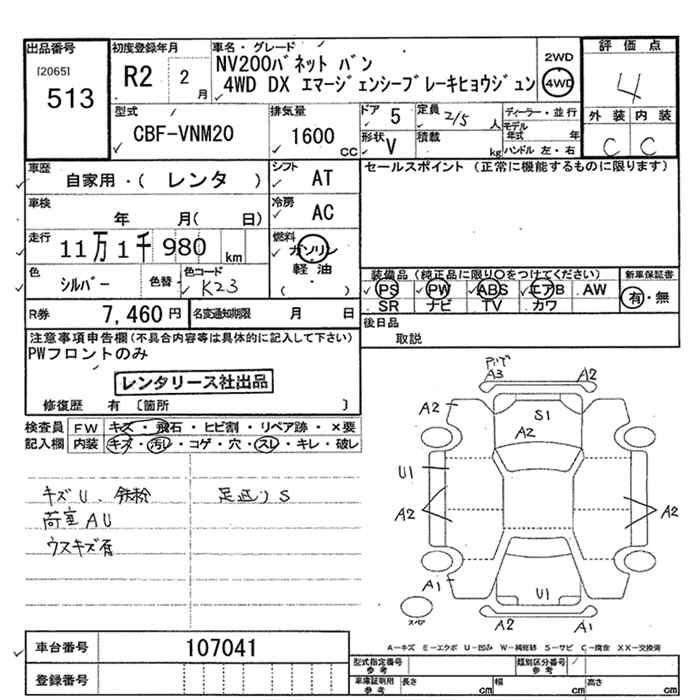 出品番号 初度登録年月 車名・グレード 評価点
[2065] R2 2月 NV200バネット バン 2WD
513 4WD DX エマージェンシーブレーキヒョウジュン 4WD 4
型式 排気量 ドア 5 定員 2/5 人 ディーラー・並行 外装 内装
CBF-VNM20 1600 CC 形状 V 積載 kg モデル年式 年 C C
ハンドル 左・右
車歴 シフト セールスポイント (正常に機能するものに限ります)
自家用・( レンタ ) AT
車検 冷房
年 月( 日) AC
走行 燃料
11万1千980 km ガソリン
軽油
( )
色 色替 色コード 装備品 (純正品に限り○をつけてください) 新車保証書
シルバー K23 PS PW ABS エアB AW 有・無
SR ナビ TV カワ
R券 7,460円 名変通知期限 月 日 後日品
取説
注意事項申告欄(不具合内容等は具体的に記入して下さい)
PWフロントのみ
レンタリース社出品
修復歴 有 〔箇所 〕
検査員 FW キズ・飛石・ヒビ割・リペア跡・×要
記入欄 内装 キズ・汚レ・コゲ・穴・スレ・キレ・破レ
キズU、鉄粉 足廻りS
荷室AU
ウスキズ有
A3 A2
A2 S1
A2
U1
A2 A2
A1 U1
スペア A2 A1
A-キズ E-エクボ U-凹み W-補修跡 S-サビ C-腐食 XX-交換済
車台番号 107041
登録番号
型式指定番号 参考 類別区分番号 参考
車庫証明用 参考 長さ cm 幅 cm 高さ cm